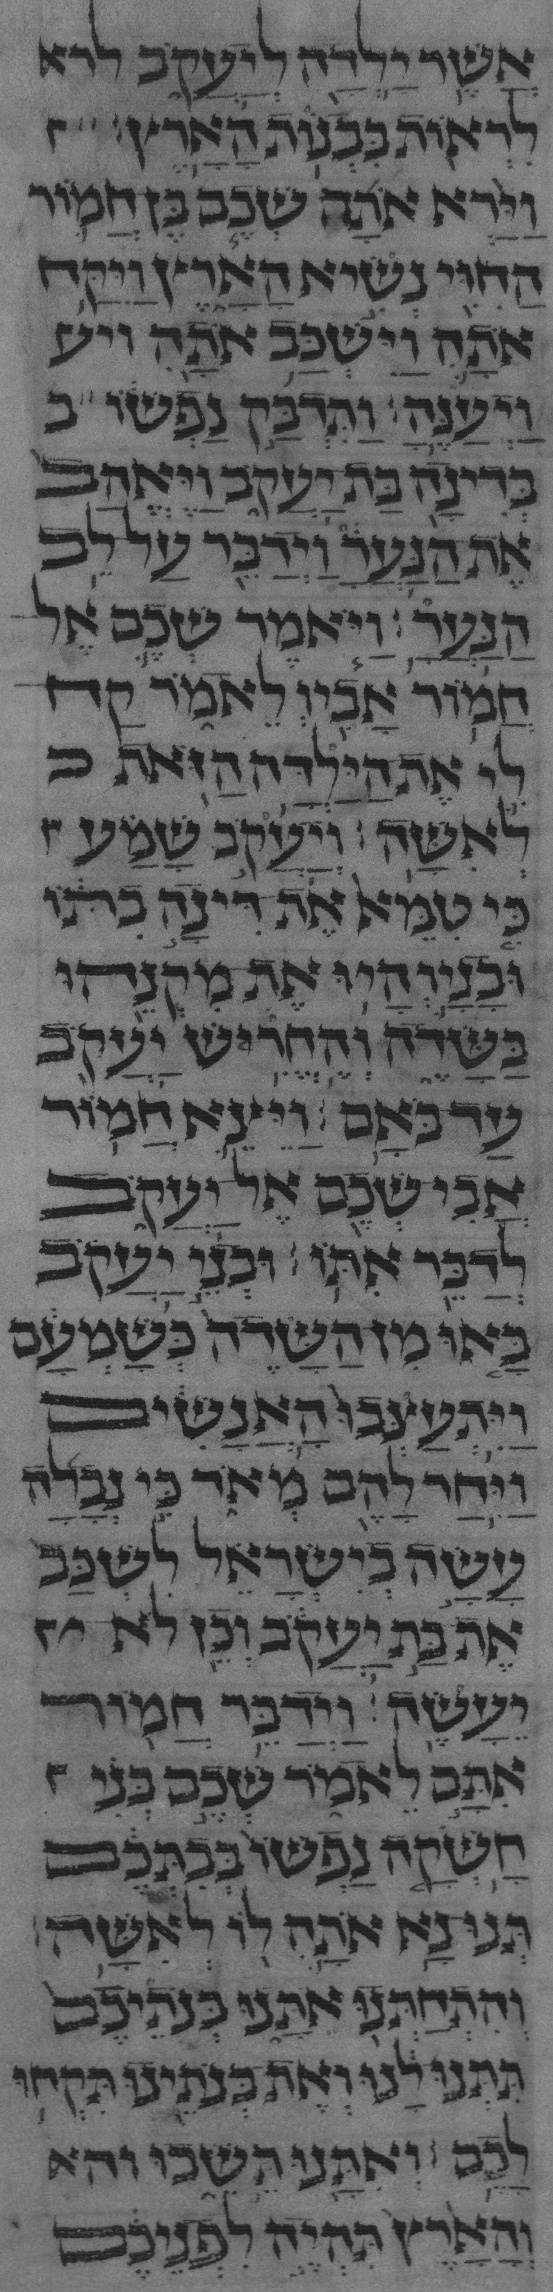 אֲשֶׁר יָלְדָה לְיַעֲקֹב לרא
לִרְאוֹת בִּבְנוֹת הָאָרֶץ׃
וַיַּרְא אֹתָהּ שְׁכֶם בֶּן חֲמוֹר
הַחִוִּי נְשִׂיא הָאָרֶץ וַיִּקַּח
אֹתָהּ וַיִּשְׁכַּב אֹתָהּ ויע
וַיְעַנֶּהָ׃ וַתִּדְבַּק נַפְשׁוֹ ב
בְּדִינָה בַּת יַעֲקֹב וַיֶּאֱהַב
אֶת הַנַּעֲרָ וַיְדַבֵּר עַל לֵב
הַנַּעֲרָ׃ וַיֹּאמֶר שְׁכֶם אֶל
חֲמוֹר אָבִיו לֵאמֹר קַח
לִי אֶת הַיַּלְדָּה הַזֹּאת
לְאִשָּׁה׃ וְיַעֲקֹב שָׁמַע
כִּי טִמֵּא אֶת דִּינָה בִתּוֹ
וּבָנָיו הָיוּ אֶת מִקְנֵהוּ
בַּשָּׂדֶה וְהֶחֱרִישׁ יַעֲקֹב
עַד בֹּאָם׃ וַיֵּצֵא חֲמוֹר
אֲבִי שְׁכֶם אֶל יַעֲקֹב
לְדַבֵּר אִתּוֹ׃ וּבְנֵי יַעֲקֹב
בָּאוּ מִן הַשָּׂדֶה כְּשָׁמְעָם
וַיִּתְעַצְּבוּ הָאֲנָשִׁים
וַיִּחַר לָהֶם מְאֹד כִּי נְבָלָה
עָשָׂה בְיִשְׂרָאֵל לִשְׁכַּב
אֶת בַּת יַעֲקֹב וְכֵן לֹא
יֵעָשֶׂה׃ וַיְדַבֵּר חֲמוֹר
אִתָּם לֵאמֹר שְׁכֶם בְּנִי
חָשְׁקָה נַפְשׁוֹ בְּבִתְּכֶם
תְּנוּ נָא אֹתָהּ לוֹ לְאִשָּׁה׃
וְהִתְחַתְּנוּ אֹתָנוּ בְּנֹתֵיכֶם
תִּתְּנוּ לָנוּ וְאֶת בְּנֹתֵינוּ תִּקְחוּ
לָכֶם׃ וְאִתָּנוּ תֵּשֵׁבוּ והא
וְהָאָרֶץ תִּהְיֶה לִפְנֵיכֶם